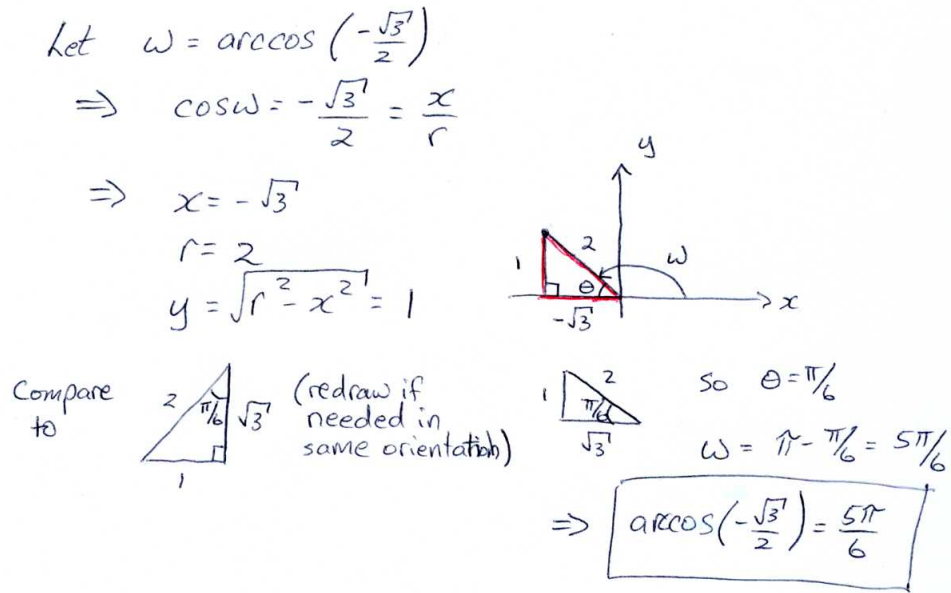 Let ω = arccos (-√3/2)
⇒ cosω = -√3/2 = x/r
⇒ x = -√3
r = 2
y = √(r² - x²) = 1
y
1 2 ω
θ
-√3 x
Compare to
2 π/6 √3
1
(redraw if
needed in
same orientation)
1 2
π/6
√3
so θ = π/6
ω = π - π/6 = 5π/6
⇒ arccos(-√3/2) = 5π/6